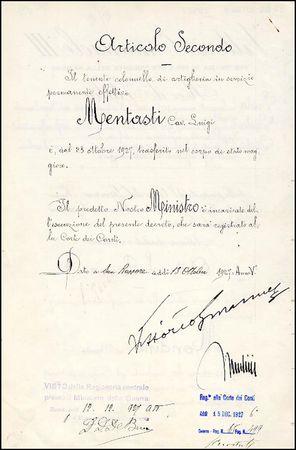 Articolo Secondo
Il tenente colonnello di artiglieria in servizio
permanente effettivo
Mentasti Cav. Luigi
è, dal 23 ottobre 1927, trasferito nel corpo di stato mag
giore.
Il predetto Nostro Ministro è incaricato del
l'esecuzione del presente decreto, che sarà registrato al
la Corte dei Conti.
Dato a San Rossore addì 13 Ottobre 1927 - Anno V°
Vittorio Emanuele
VISTO della Ragioneria centrale
presso il Ministero della Guerra
12. 12. 927
Reg.° alla Corte dei Conti
addì 15 DIC. 1927
Guerra - Reg. N.